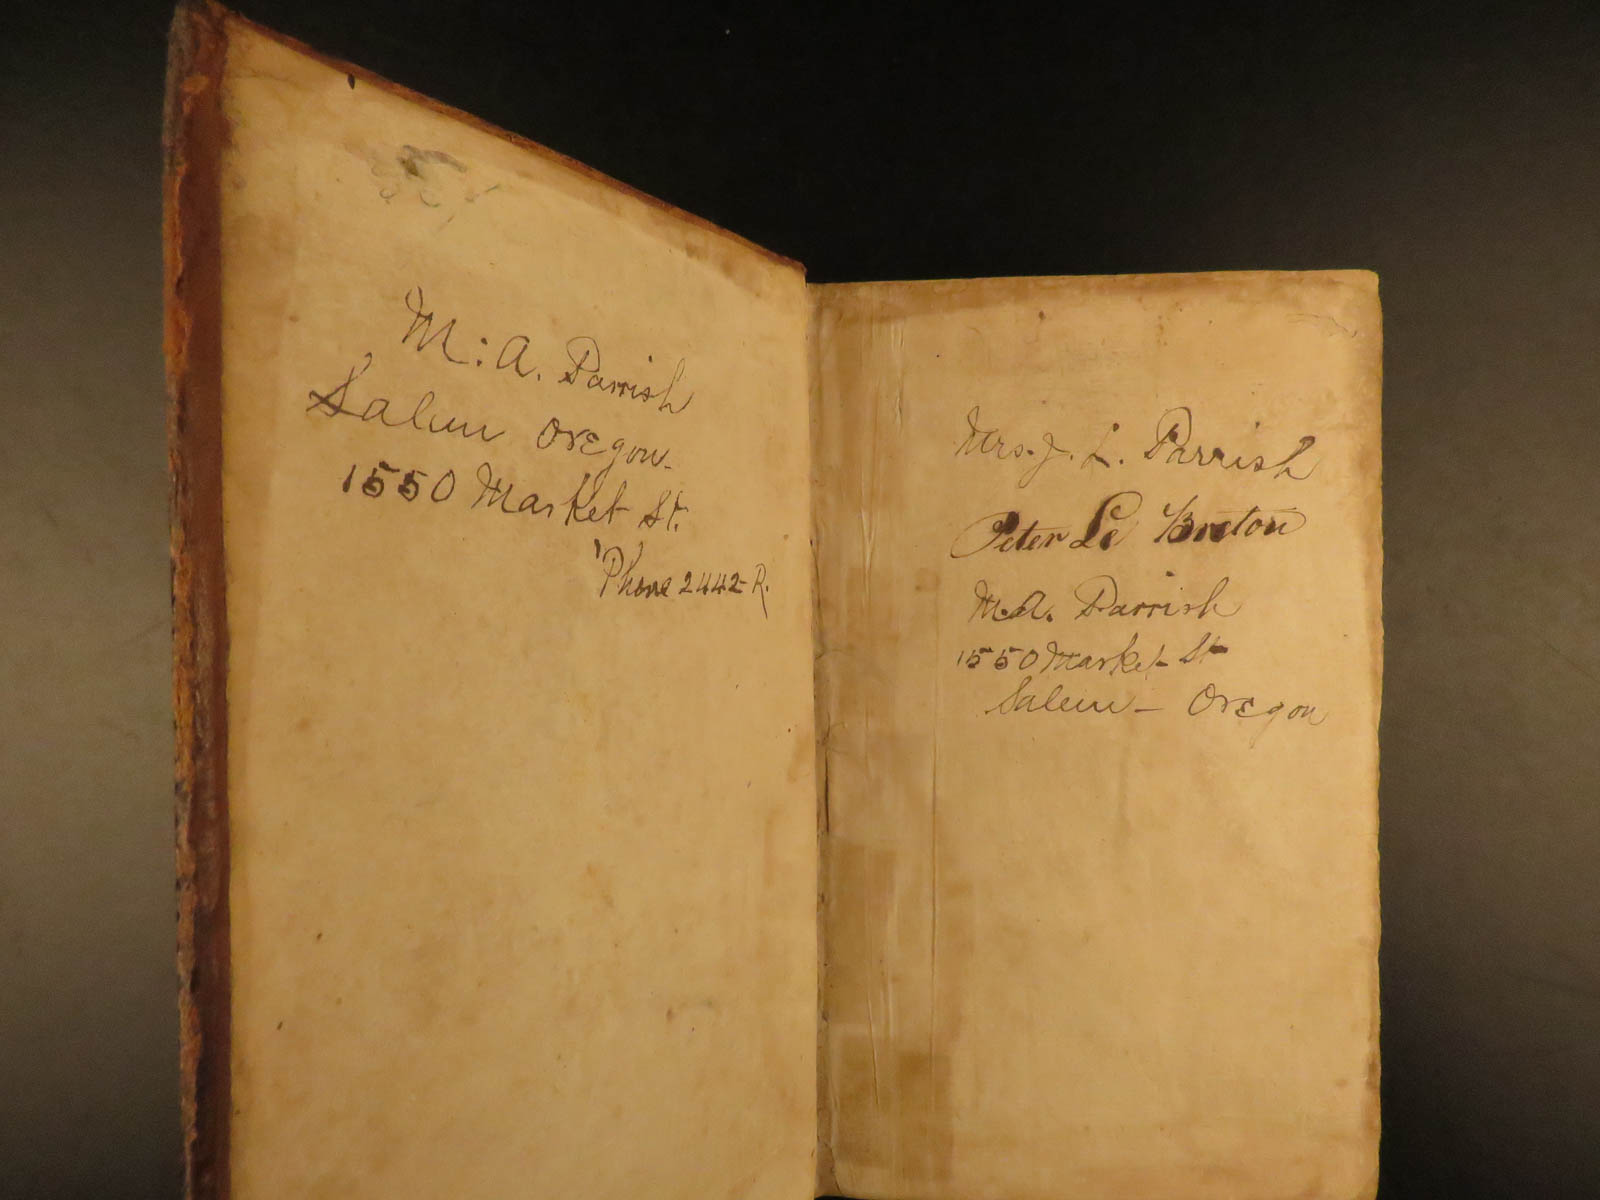 M. A. Parrish
Salem Oregon.
1550 Market St.
'Phone 2442-R.
Mrs. J. L. Parrish
Peter Le Breton
M.A. Parrish
1550 Market St
Salem - Oregon